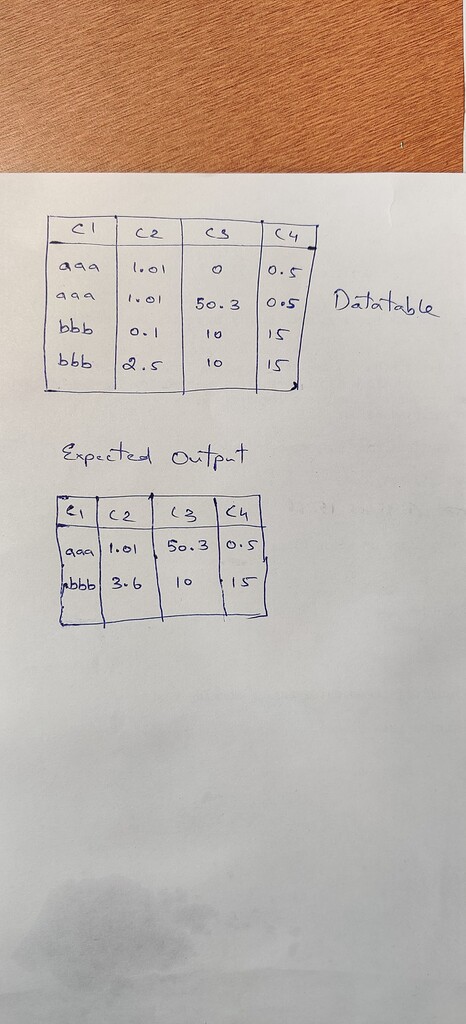 C1 C2 C3 C4
aaa 1.01 0 0.5
aaa 1.01 50.3 0.5
bbb 0.1 10 15
bbb 2.5 10 15
Datatable
Expected Output
C1 C2 C3 C4
aaa 1.01 50.3 0.5
bbb 3.6 10 15